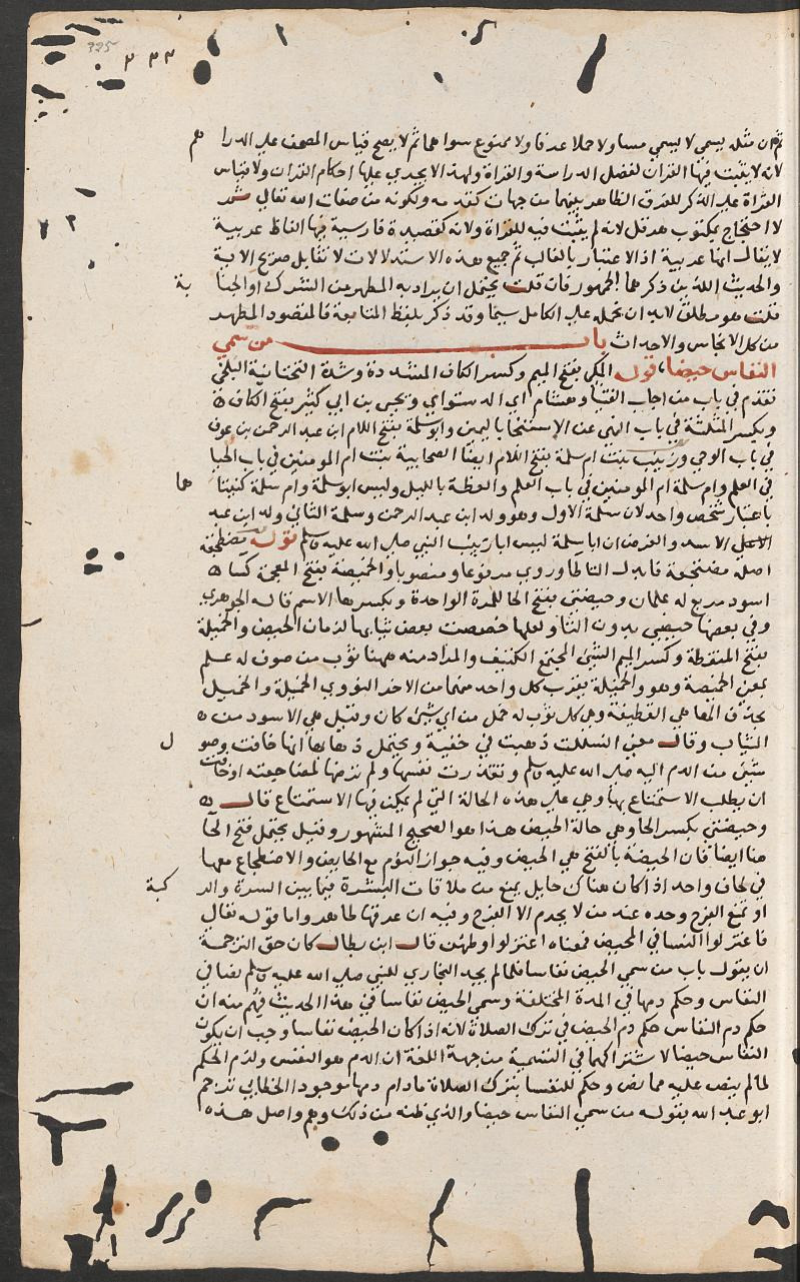 325
٣٣٣
ثم ان مثله يسمي لا يسمي مساولا حملا عرفا ولا ممنوع سواهما ثم لا يصح قياس المصحف علي الدرا هم
لانه لا يثبت فيها القران لفضل الدراسة والقراة ولهذا لا يجري عليها احكام القران ولا قياس
القراة علي الذكر للفرق الظاهر بينهما من جهات كقدمه ولكونه من صفات الله تعالي ثم
لا احتجاج بمكتوب هرقل لانه لم يثبت فيه للقراة ولانه كقصيدة فارسية فيها الفاظ عربية
لا يقال انها عربية اذ الاعتبار بالغالب ثم جميع هذه الاستدلالات لا تقابل صريح الاية
والحديث اللذين ذكرهما الجمهور فان قلت يحتمل ان يراد به المطهر من الشرك او الجنا بة
قلت هو مطلق لابد ان نحمله علي الكامل سيما وقد ذكر بلفظ المبالغة فالمقصود المطهر
من كل الانجاس والاحداث باب من سمي
النفاس حيضا، قوله المكي بفتح الميم وكسر الكاف المشددة وشدة التحتانية البلخي
تقدم في باب من اجاب الفتيا وهشام اي الدستواي ويحيى بن ابي كثير بفتح الكاف
وبكسر المثلثة في باب النهي عن الاستنجا باليمين وابوسلمة بفتح اللام ابن عبد الرحمن بن عوف
في باب الوحي وزينب بنت ام سلمة بفتح اللام ايضا الصحابية بنت ام المومنين في باب الحيا
في العلم وام سلمة ام المومنين في باب العلم والعظة بالليل وليس ابوسلمة وام سلمة كنيتا هما
باعتبار شخص واحد لان سلمة الاول هو ولد ابن عبد الرحمن وسلمة الثاني ولد ابن عبد
الاسد والغرض ان اباسلمة ليس ابا ربيب النبي صلى الله عليه وسلم قوله مضطجعة
اصله مضتجعة فابدل التا طا وروي مرفوعا ومنصوبا والخميصة بفتح المعجمة كسا
اسود مربع له علمان وحيضتي بفتح الحا للمرة الواحدة وبكسرها الاسم قاله الجوهري
وفي بعضها حيضي بدون التا ولعلها خصصت بعض ثيابها لزمان الحيض والخميلة
بفتح المنقطة وكسر الميم الشئ المجتمع الكثيف والمراد منه ههنا ثوب من صوف له علم
بمعنى الخميصة وهو والخميلة بقرب كل واحد منهما من الاخر النووي الخميلة والخميل
بحذف الها هي القطيفة وهي كل ثوب له خمل من اي شئ كان وقيل هي الاسود من
الثياب وقال معنى انسللت ذهبت في خفية ويحتمل ذهابها انها خافت وصو ل
شئ من الدم اليه صلى الله عليه وسلم وتقذرت نفسها ولم ترضها لمضاجعته او خافت
ان يطلب الاستمتاع بها وهي علي هذه الحالة التي لم يمكن فيها الاستمتاع قال
وحيضتي بكسر الحا وهي حالة الحيض هذا هو الصحيح المشهور وقيل يحتمل فتح الحا
هنا ايضا فان الحيضة بالفتح هي الحيض وفيه جواز النوم مع الحايض والاضطجاع معها
في لحاف واحد اذا كان هناك حايل يمنع من ملاقات البشرة فيما بين السرة والر كبة
او تمنع الفرج وحده عند من لا يحرم الا الفرج وفيه ان عرقها طاهر واما قوله تعالي
فاعتزلوا النسا في المحيض فمعناه اعتزلوا وطئهن قال ابن بطال كان حق الترجمة
ان يقول باب من سمي الحيض نفاسا فلما لم يجد البخاري للنبي صلى الله عليه وسلم نصا في
النفاس وحكم دمها في المدة المختلفة وسمي الحيض نفاسا في هذا الحديث فهم منه ان
حكم دم النفاس حكم دم الحيض في ترك الصلاة لانه اذا كان الحيض نفاسا وجب ان يكون
النفاس حيضا لاشتراكهما في التسمية من جهة اللغة ان الدم هو النفس ولزم الحكم
لما لم ينص عليه مما نص وحكم للنفسا بترك الصلاة ما دام دمها موجودا الخطابي ترجم
ابو عبد الله بقوله من سمي النفاس حيضا والذي ظنه من ذلك وهم واصل هذه